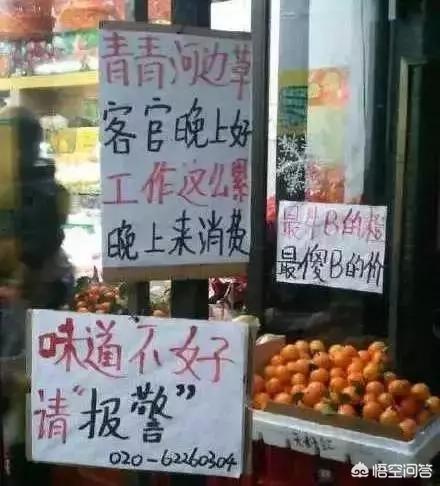 青青河边草
客官晚上好
工作这么累
晚上来消费
最牛B的橙
最傻B的价
味道不好
请"报警"
020-62260304
悟空问答